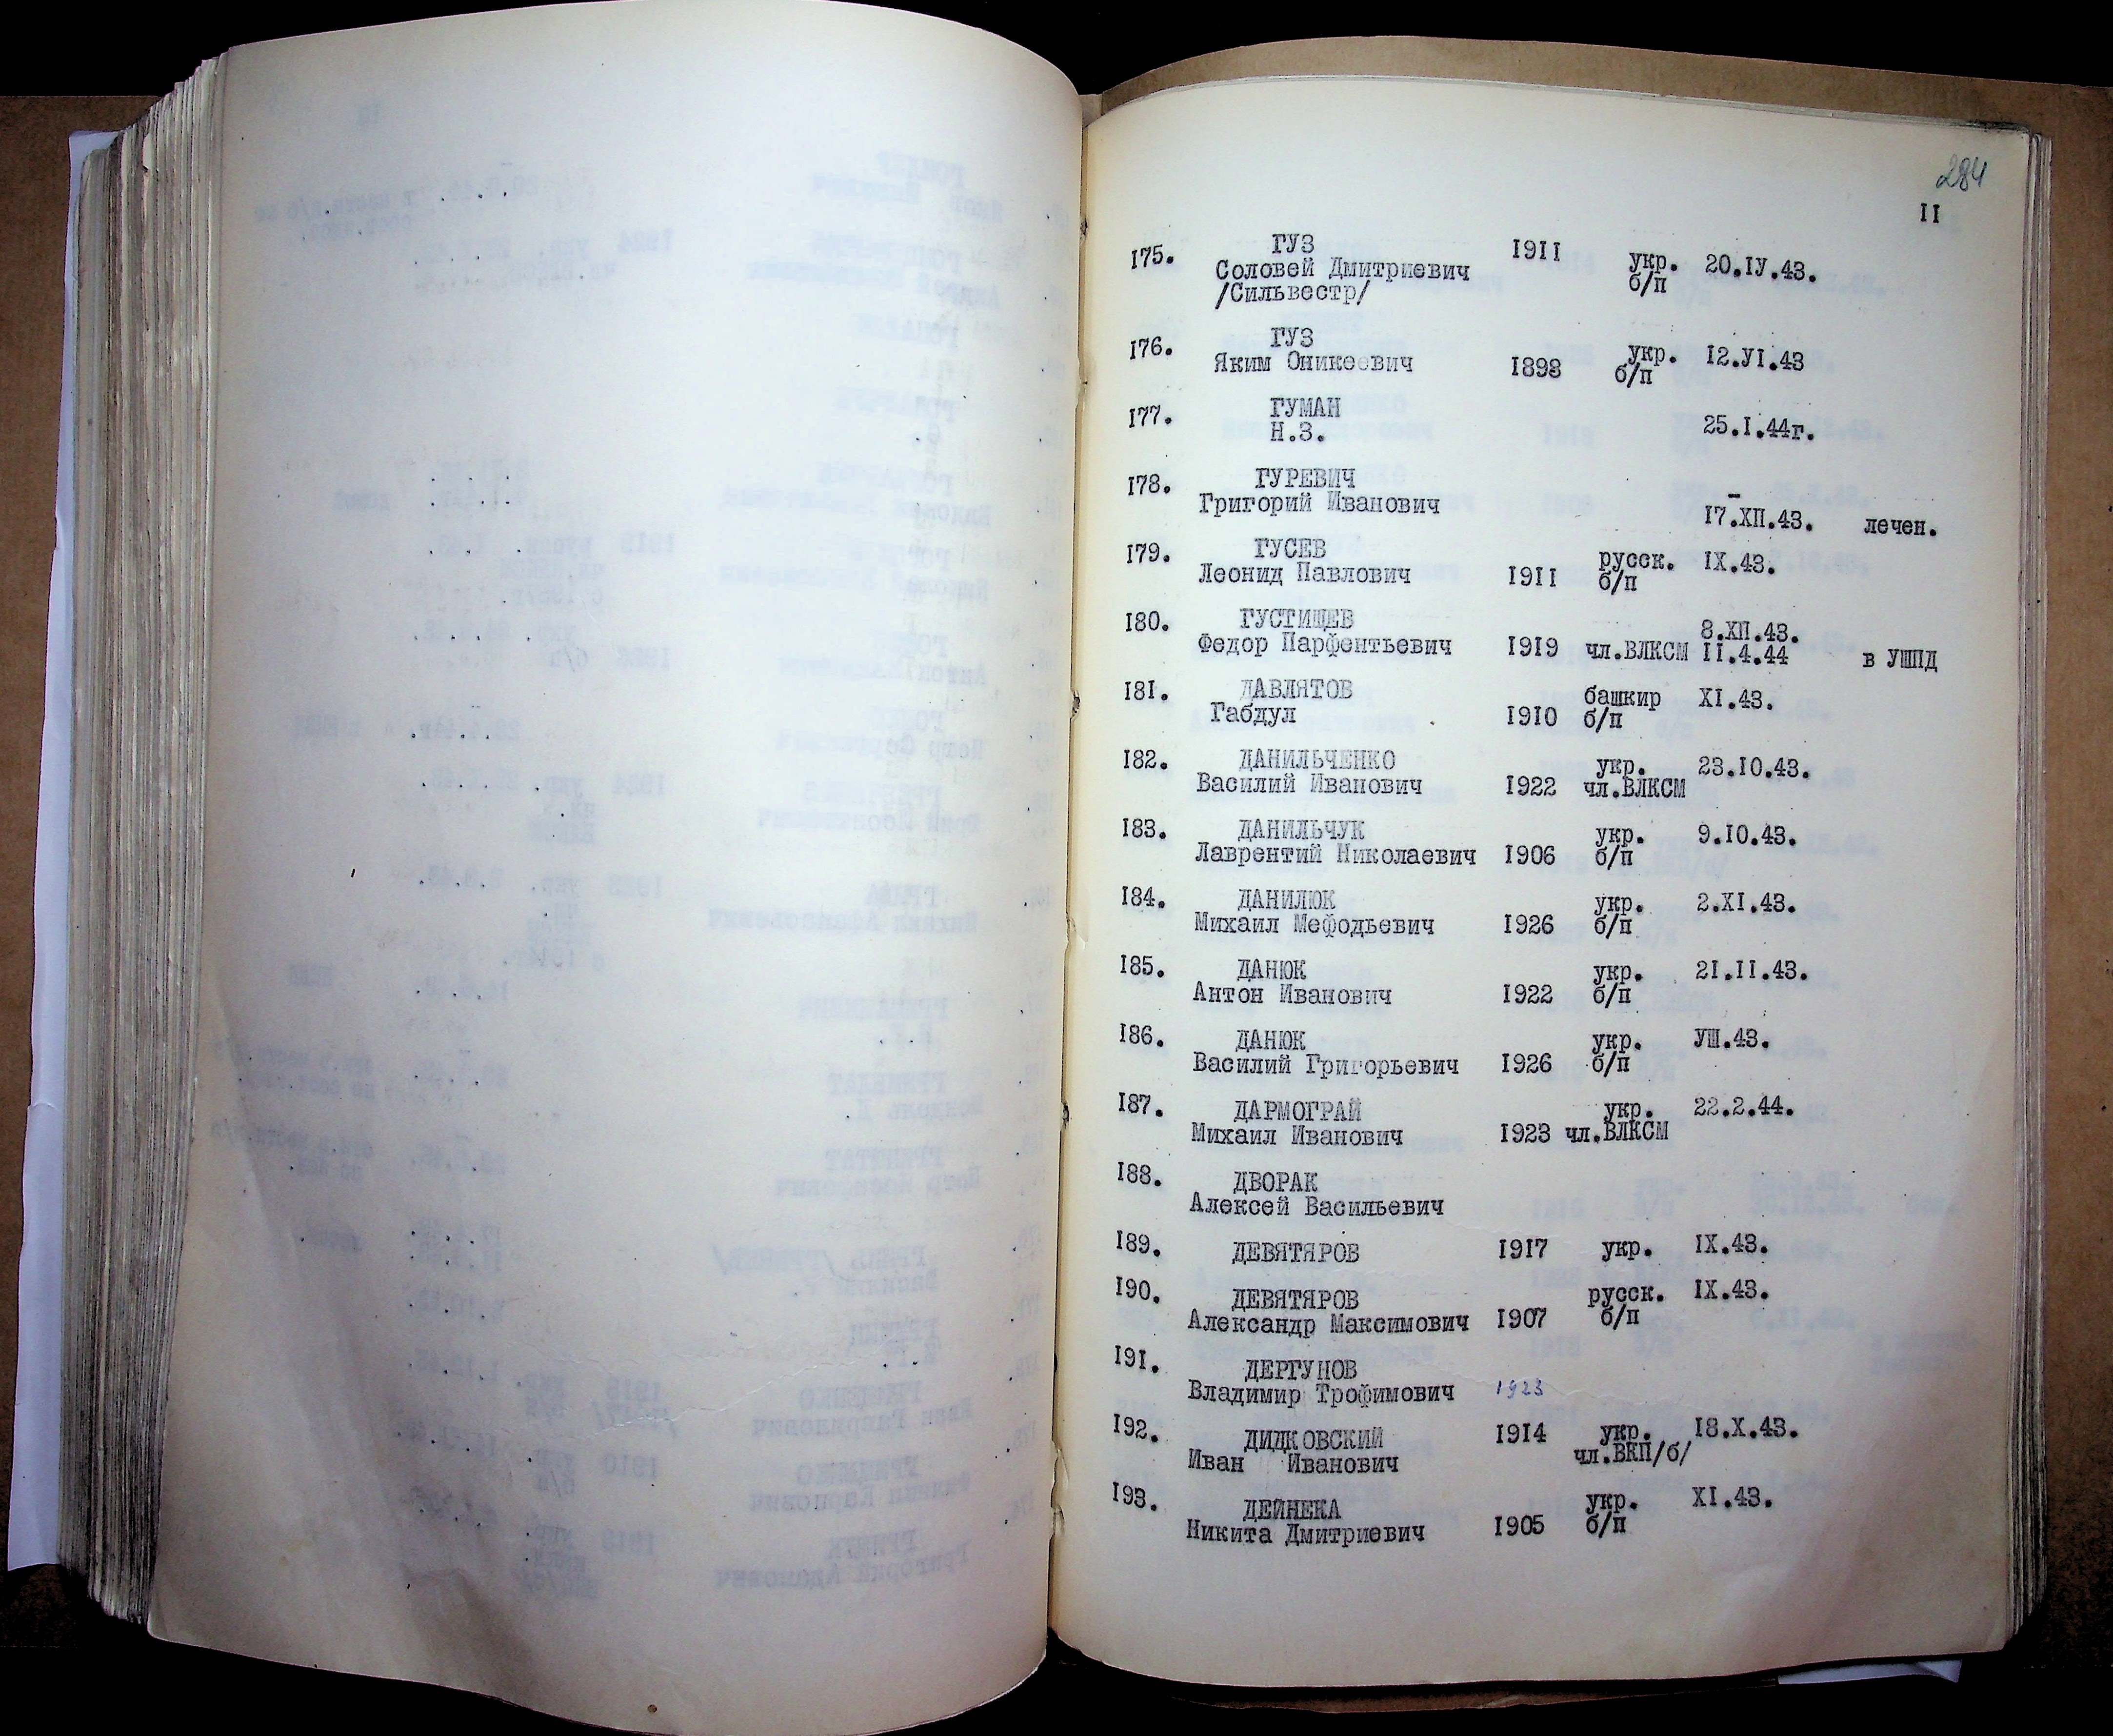 284
II
175. ГУЗ 1911
Соловей Дмитриевич укр. 20.IУ.43.
/Сильвестр/ б/п
176. ГУЗ укр. 12.УI.43
Яким Оникеевич 1898 б/п
177. ГУМАН
Н.З. 25.I.44г.
178. ГУРЕВИЧ –
Григорий Иванович 17.ХП.43. лечен.
179. ГУСЕВ русск. IХ.43.
Леонид Павлович 1911 б/п
180. ГУСТИЩЕВ 8.ХП.43.
Федор Парфентьевич 1919 чл.ВЛКСМ II.4.44 в УШПД
181. ДАВЛЯТОВ башкир ХI.43.
Габдул 1910 б/п
182. ДАНИЛЬЧЕНКО укр. 23.10.43.
Василий Иванович 1922 чл.ВЛКСМ
183. ДАНИЛЬЧУК укр. 9.10.43.
Лаврентий Николаевич 1906 б/п
184. ДАНИЛЮК укр. 2.ХI.43.
Михаил Мефодьевич 1926 б/п
185. ДАНЮК укр. 21.II.43.
Антон Иванович 1922 б/п
186. ДАНЮК укр. УШ.43.
Василий Григорьевич 1926 б/п
187. ДАРМОГРАЙ укр. 22.2.44.
Михаил Иванович 1923 чл.ВЛКСМ
188. ДВОРАК
Алексей Васильевич
189. ДЕВЯТЯРОВ 1917 укр. IХ.43.
190. ДЕВЯТЯРОВ русск. IХ.43.
Александр Максимович 1907 б/п
191. ДЕРГУНОВ
Владимир Трофимович 1923
192. ДИДКОВСКИЙ 1914 укр. 18.Х.43.
Иван Иванович чл.ВКП/б/
193. ДЕЙНЕКА укр. ХI.43.
Никита Дмитриевич 1905 б/п